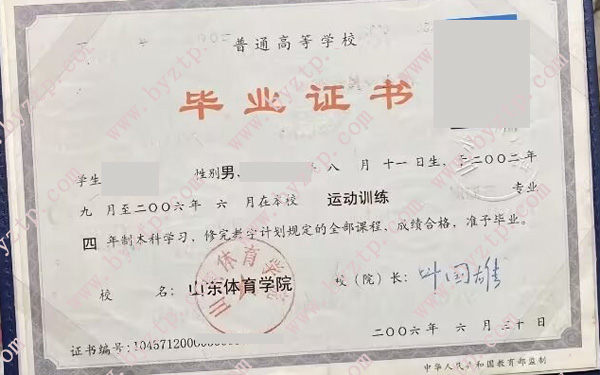 普通高等学校
毕业证书
学生 性别男, 八月十一日生，于二〇〇二年
九月至二〇〇六年六月在本校 运动训练 专业
四年制本科学习，修完教学计划规定的全部课程，成绩合格，准予毕业。
校 名：山东体育学院 校（院）长：
二〇〇六年六月三十日
证书编号：1045712000
中华人民共和国教育部监制
www.byztp.com